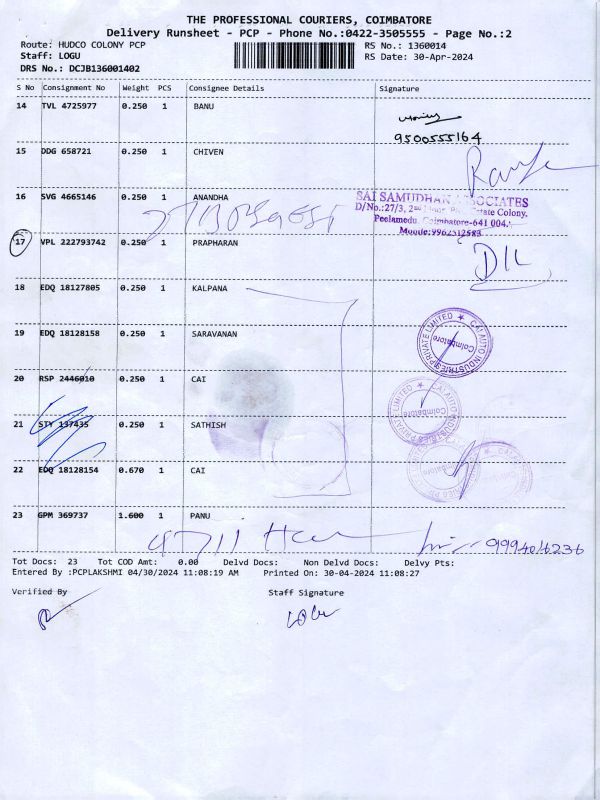 THE PROFESSIONAL COURIERS, COIMBATORE
Delivery Runsheet - PCP - Phone No.:0422-3505555 - Page No.:2
Route: HUDCO COLONY PCP RS No.: 1360014
Staff: LOGU RS Date: 30-Apr-2024
DRS No.: DCJB136001402
S No Consignment No Weight PCS Consignee Details Signature
14 TVL 4725977 0.250 1 BANU
9500555164
15 DDG 658721 0.250 1 CHIVEN
16 SVG 4665146 0.250 1 ANANDHA
SAI SAMUDHAR ASSOCIATES
D/No.:27/3, 2nd Estate Colony,
Peelamedu, Coimbatore-641 004.
17 VPL 222793742 0.250 1 PRAPHARAN
18 EDQ 18127805 0.250 1 KALPANA
19 EDQ 18128158 0.250 1 SARAVANAN
CAI AUTO INDUSTRIES PRIVATE LIMITED
Coimbatore
20 RSP 2446010 0.250 1 CAI
CAI AUTO INDUSTRIES PRIVATE LIMITED
Coimbatore
21 STY 137435 0.250 1 SATHISH
22 EDQ 18128154 0.670 1 CAI
23 GPM 369737 1.600 1 PANU
9994016236
Tot Docs: 23 Tot COD Amt: 0.00 Delvd Docs: Non Delvd Docs: Delvy Pts:
Entered By :PCPLAKSHMI 04/30/2024 11:08:19 AM Printed On: 30-04-2024 11:08:27
Verified By Staff Signature